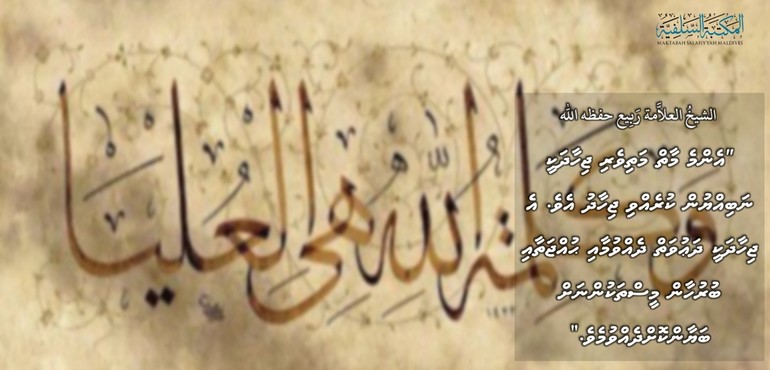 المكتبة السلفية
MAKTABAH SALAFIYYAH MALDIVES
الشيخُ العلاَّمة رَبِيع حفظه الله
"އެންމެ މާތް މަތިވެރި ޖިހާދަކީ
ނަބިއްޔުން ކުރެއްވި ޖިހާދު އެވެ. އެ
ޖިހާދަކީ ދަޢުވަތު ދެއްވުމާއި ޙުއްޖަތާއި
ބުރުހާން މީސްތަކުންނަށް
ބަޔާންކޮށްދެއްވުމެވެ."
وكلمة الله هي العليا